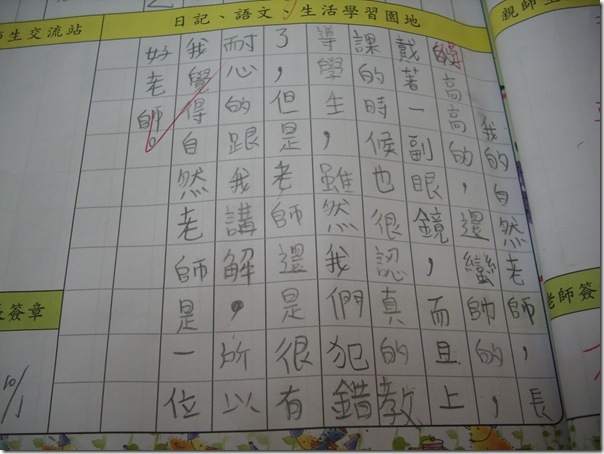 日記、語文、生活學習園地
我的自然老師,長
得高高的,還蠻帥的,
戴著一副眼鏡,而且上
課的時候也很認真的教
導學生,雖然我們犯錯
了,但是老師還是很有
耐心的跟我講解,所以
我覺得自然老師是一位
好老師。
師生交流站
簽章
10/1
親師生
老師簽